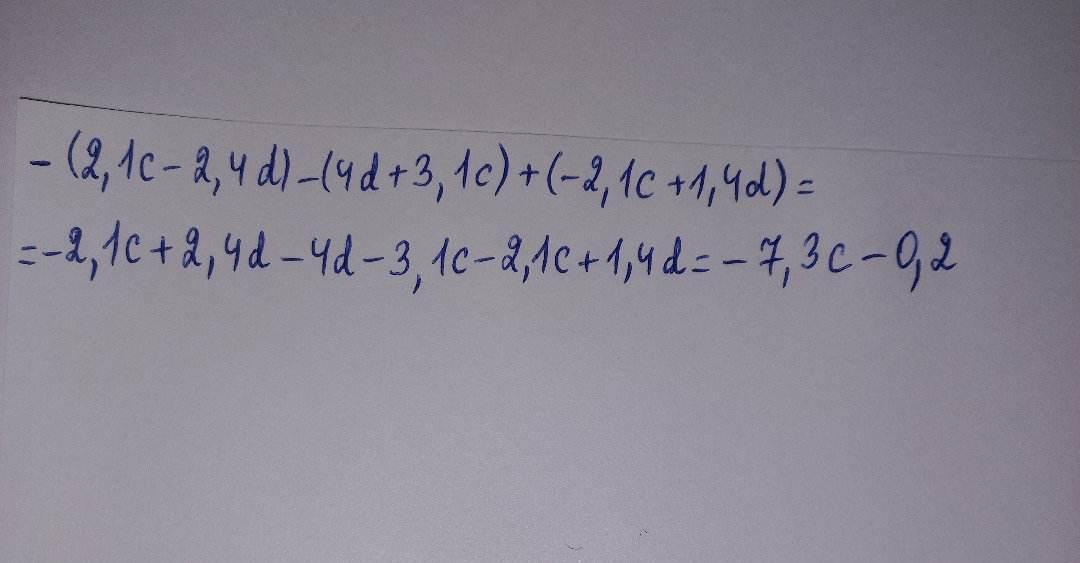 - (2,1c - 2,4d) - (4d + 3,1c) + (-2,1c + 1,4d) =
= -2,1c + 2,4d - 4d - 3,1c - 2,1c + 1,4d = - 7,3c - 0,2